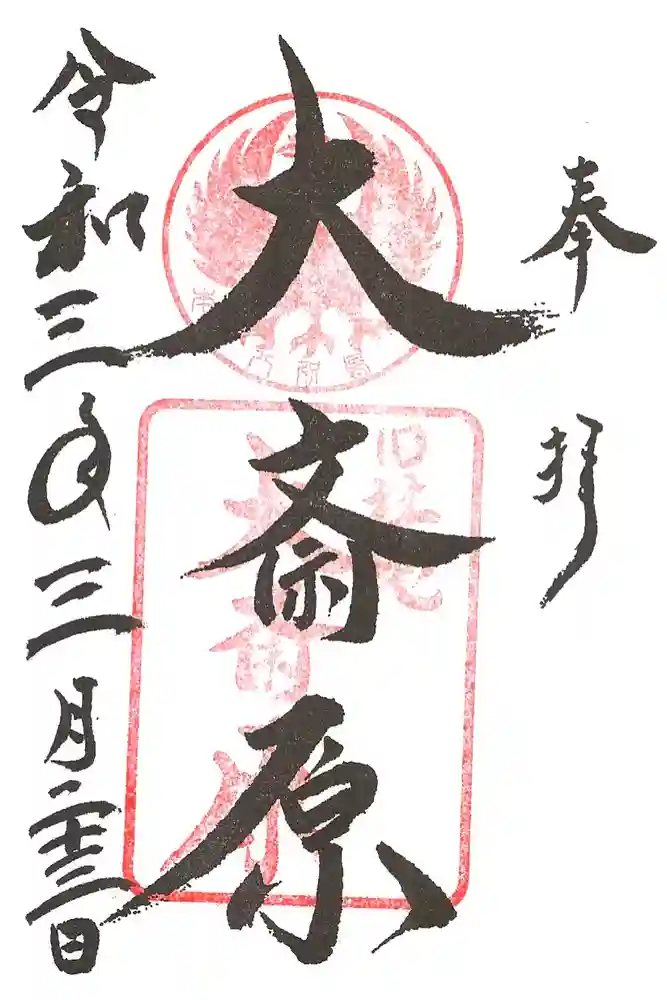 奉拝
旧社地
大斎原
大斎原
令和三年三月二十三日